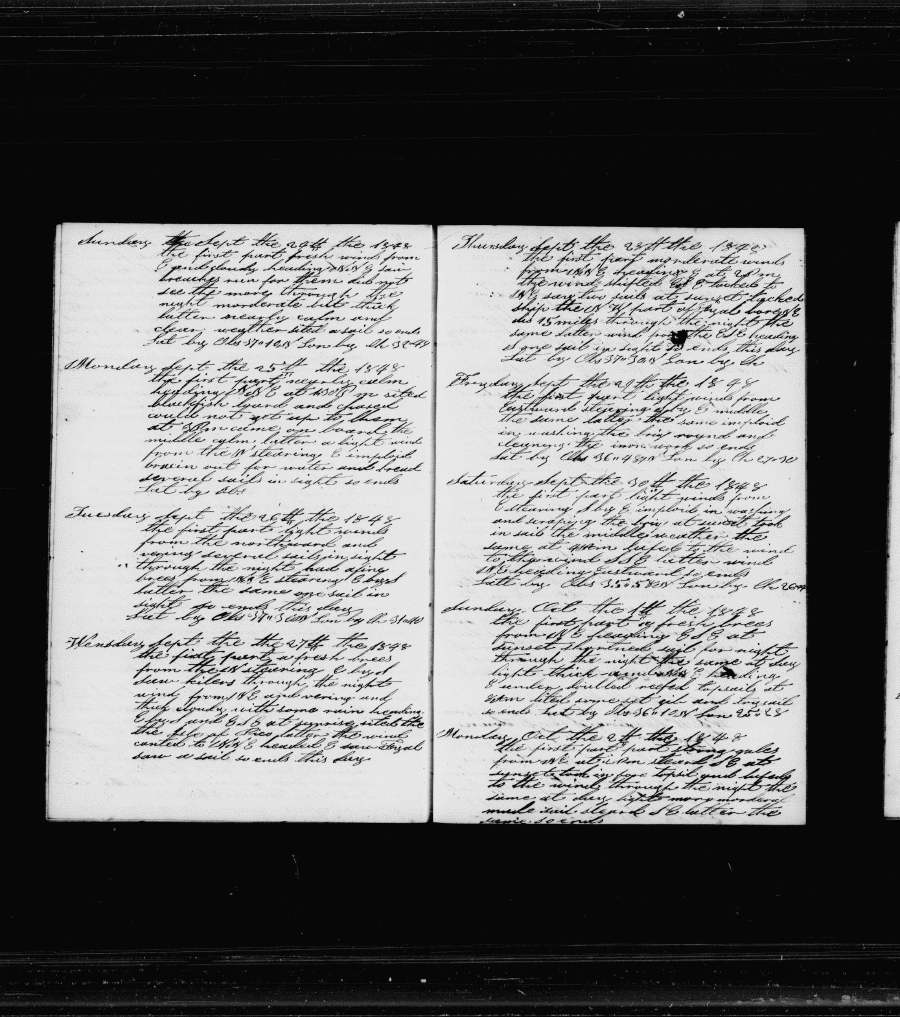 Sunday the Sept the 24th the 1848
the first part fresh winds from
E and cloudy heading NNE saw
breaches run for them did not
see the more through the
night moderate but thick
latter nearly calm and
clear weather sited a sail so ends
Lat by Obs 37=12N Lon by Ch
Monday Sept the 25th the 1848
the first part nearly calm
heading at m sited
blackfish lowered and chased
could not get up to them
at came on board the
middle calm latter a light wind
from the N stearing E imploid
brakin out for water and bread
several sails in sight so ends
Lat by Obs
Tuesday Sept the 26th the 1848
the first part light winds
from the northward and
varying several sails in sight
through the night had a fine
brees from E stearing E by S
latter the same one sail in
sight so ends this day
Lat by Obs 37= Lon by Ch 31=40
Wensday Sept the the 27th the 1848
the first part a fresh brees
from the stearing E by S
saw kilers through the night
wind from NE and vering and
thick cloudy with some rain heading
E by S and ESE at sunrise sited the
the ile of latter the wind
canted to NNE headed E saw Fayal
saw a sail so ends this day
Thursday Sept the 28th the 1848
the first part morderate winds
from NNE heading E at
the wind shifted to E tacked to
NE saw two sails at sunset tacked
ship the part of Fayal bore
dis 15 miles through the night the
same latter wind the ESE heading
S one sail in sight so ends this day
Lat by Obs 37=30N Lon by Ch
Fryday Sept the 29th the 1848
the first part light winds from
Eastward stearing S by E middle
the same latter the same imploid
in washing the brig round and
cleaning the iron work so ends
Lat by Obs 36=48N Lon by Ch 27=30
Saturday Sept the 30th the 1848
the first part light winds from
E stearing S by E imploid in washing
and scraping the brig at sunset took
in sail the middle weather the
same at hufed to the wind
to the wind SSE latter wind
NE heading Eastward so ends
Latt by Obs 35=58N Lon by Ch
Sunday Oct the 1th the 1848
the first part of fresh brees
from NE heading ESE at
sunset shortned sail for night
through the night the same at day
light thick and heading
E under doubled reefed topsails at
sited some set gib and trysail
so ends Lat by Obs 36=12N Lon 25=28
Monday Oct the 2th the 1848
the first part part strong gales
from NE at steard SE at
sunset took in fore topsail and hufed
to the wind through the night the
same at day light more morderd
made sail steard SE latter the
same so ends